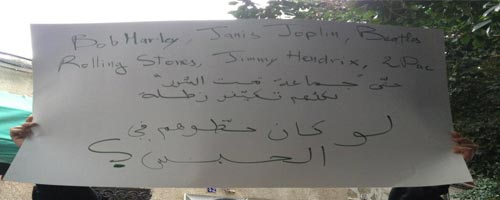 Bob Marley, Janis Joplin, Beatles
Rolling Stones, Jimmy Hendrix, 2Pac
حتى "جماعة تحت السور"
كلهم تكيفر زطلة
لو كان حطوهم في
الحبس؟